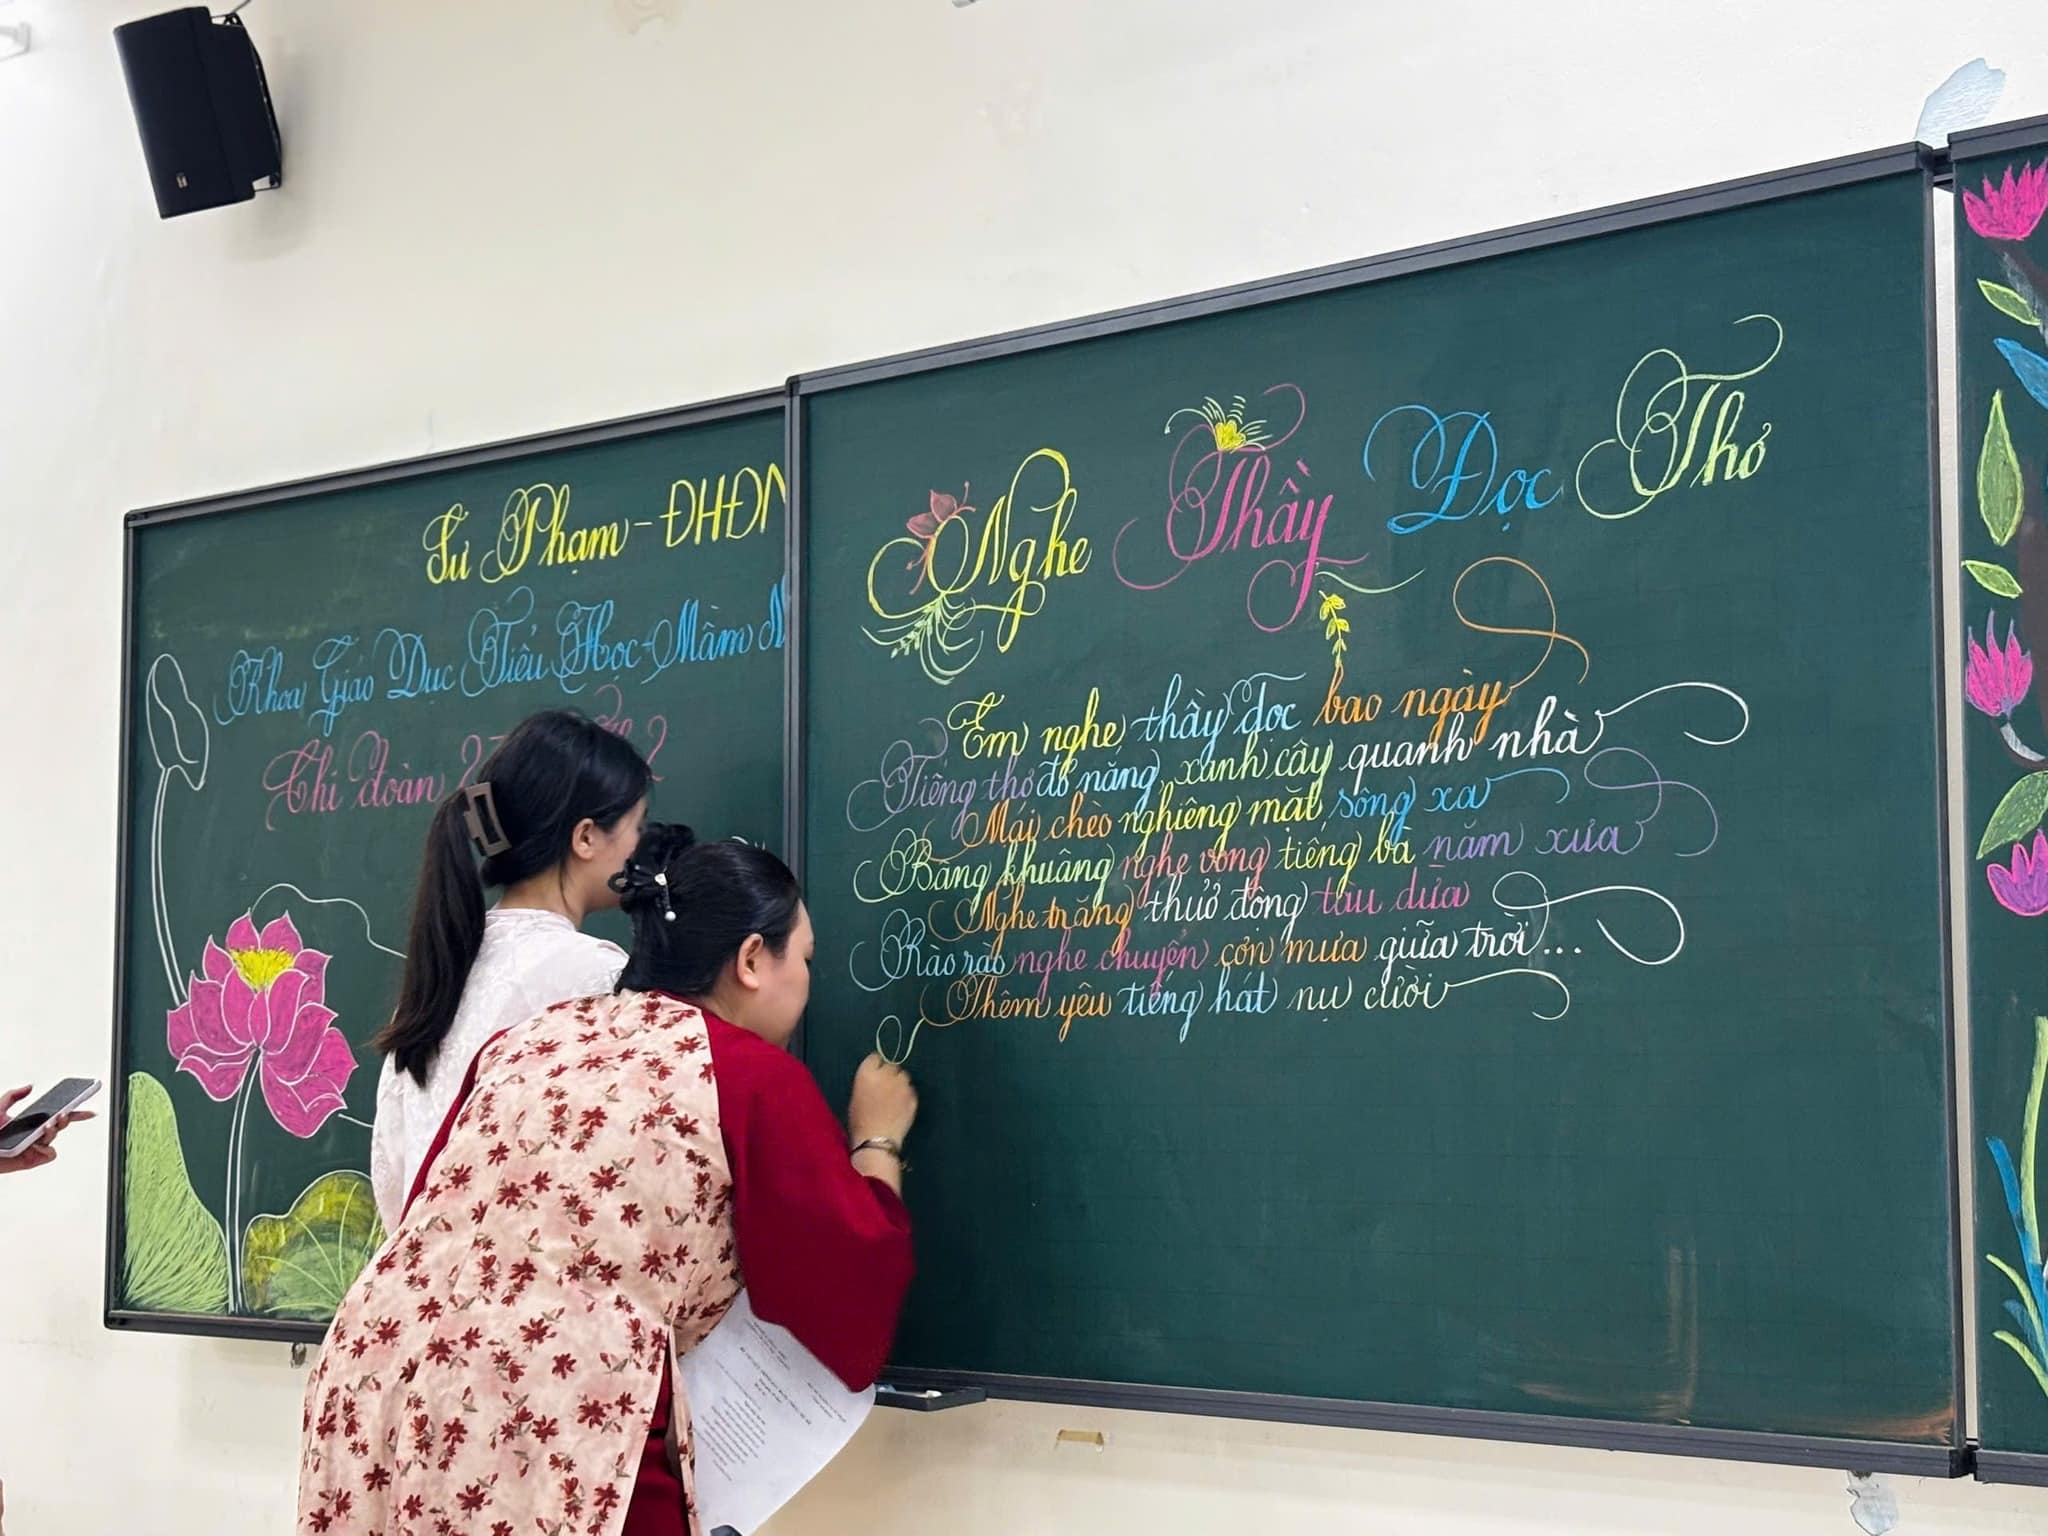 Sư Phạm - ĐHĐN
Khoa Giáo Dục Tiểu Học - Mầm N
Chi đoàn 2
Nghe Thầy Đọc Thơ
Em nghe thầy đọc bao ngày
Tiếng thơ đỏ nắng, xanh cây quanh nhà
Mái chèo nghiêng mặt sông xa
Bâng khuâng nghe vọng tiếng bà năm xưa
Nghe trăng thuở động tàu dừa
Rào rào nghe chuyển cơn mưa giữa trời...
Thêm yêu tiếng hát nụ cười